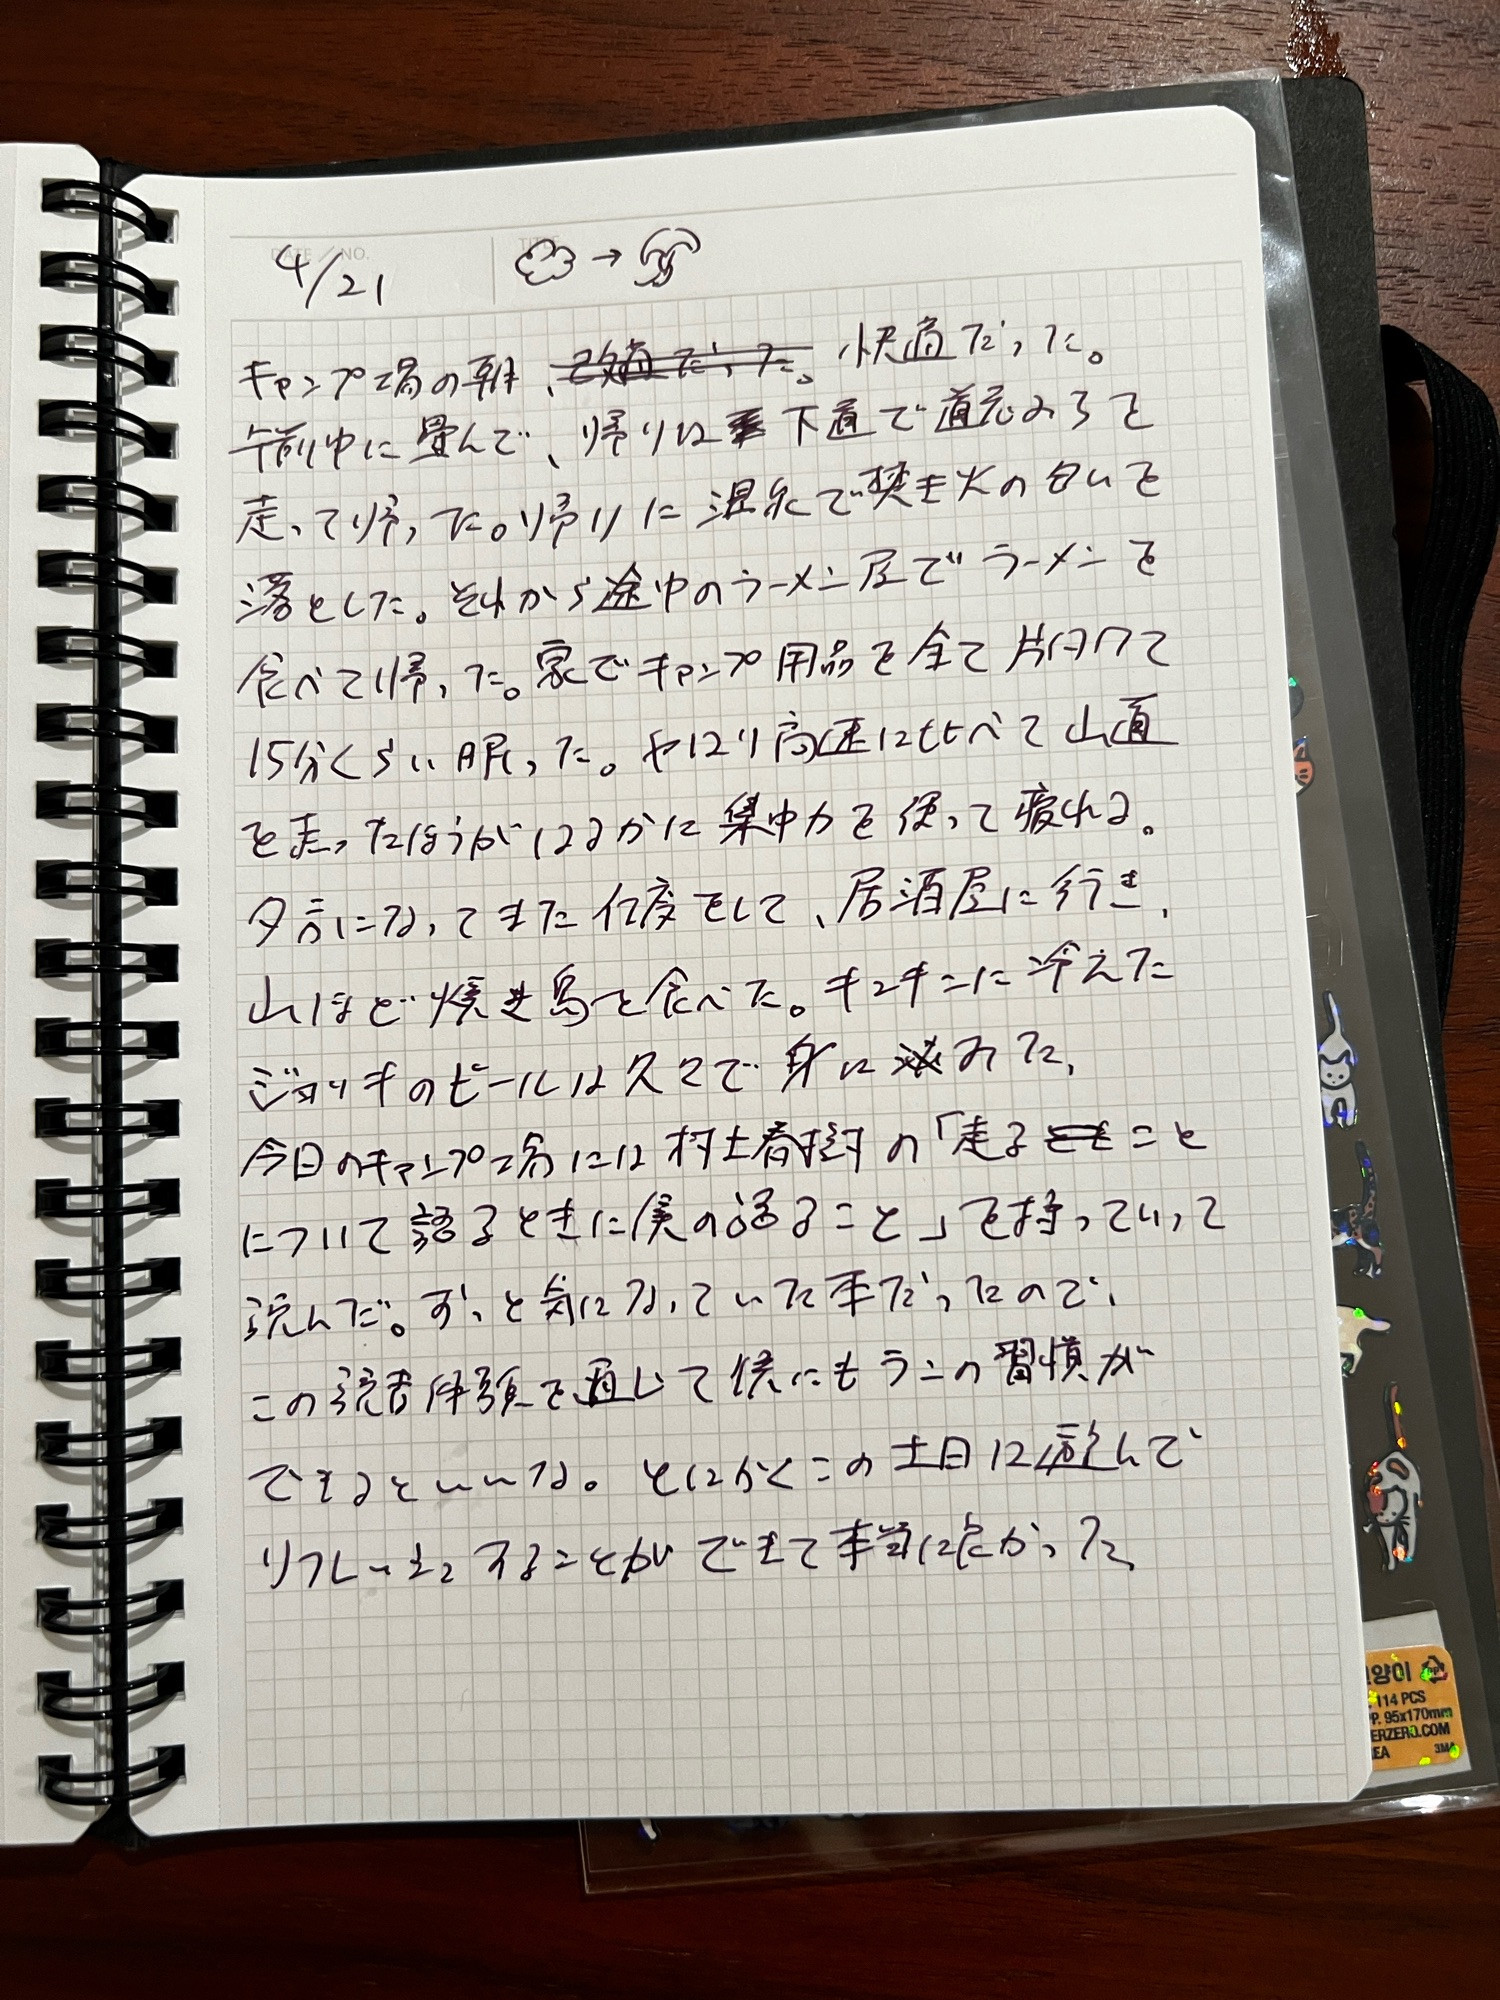 DATE / NO.
TITLE
4/21
キャンプ場の朝、改適だった。快適だった。
午前中に畳んで、帰りは下道で道志みちを
走って帰った。帰りに温泉で焚き火の匂いを
落とした。それから途中のラーメン屋でラーメンを
食べて帰った。家でキャンプ用品を全て片付けて
15分くらい眠った。やはり高速に比べて山道
を走ったほうがはるかに集中力を使って疲れる。
夕方になってまた仕度をして、居酒屋に行き、
山ほど焼き鳥を食べた。キンキンに冷えた
ジョッキのビールは久々で身に沁みた。
今日のキャンプ場には村上春樹の「走ること
について語るときに僕の語ること」を持っていって
読んだ。ずっと気になっていた本だったので、
この読書体験を通じて僕にもランの習慣が
できるといいな。とにかくこの土日は遊んで
リフレッシュすることができて本当に良かった。
고양이
114 PCS
PP. 95x170mm
ERZERO.COM